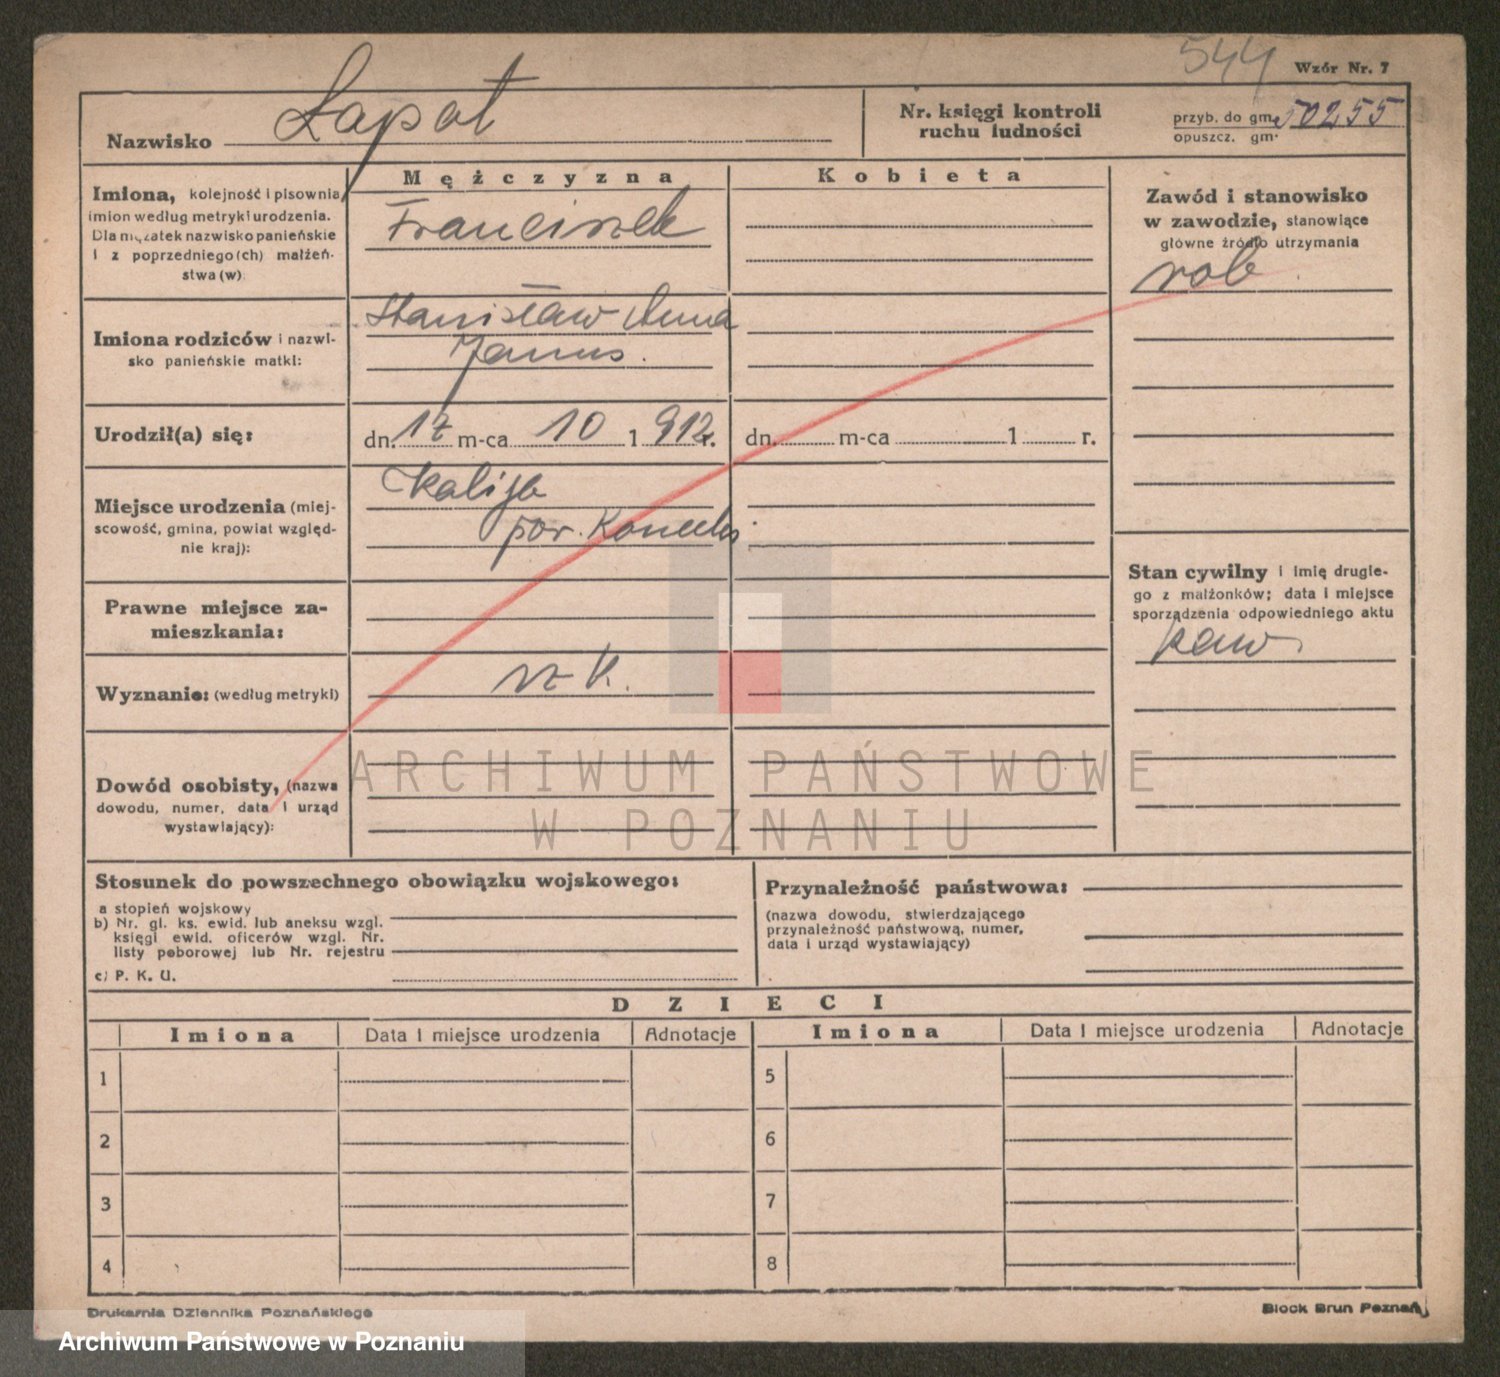 544
Wzór Nr. 7
Nazwisko Łapot
Nr. księgi kontroli
ruchu ludności
przyb. do gm. 50255
opuszcz. gm.
Imiona, kolejność i pisownia
imion według metryki urodzenia.
Dla mężatek nazwisko panieńskie
i z poprzedniego(ch) małżeń-
stwa (w)
Mężczyzna
Franciszek
Kobieta
Zawód i stanowisko
w zawodzie, stanowiące
główne źródło utrzymania
rob.
Imiona rodziców i nazwi-
sko panieńskie matki:
Stanisław Anna
Janus.
Urodził(a) się:
dn. 17 m-ca 10 1 912 r.
dn. m-ca 1 r.
Miejsce urodzenia (miej-
scowość, gmina, powiat względ-
nie kraj):
pow.
Prawne miejsce za-
mieszkania:
Stan cywilny i imię drugie-
go z małżonków; data i miejsce
sporządzenia odpowiedniego aktu
kaw
Wyznanie: (według metryki)
rz K.
Dowód osobisty, (nazwa
dowodu, numer, data i urząd
wystawiający):
ARCHIWUM PAŃSTWOWE
W POZNANIU
Stosunek do powszechnego obowiązku wojskowego:
a stopień wojskowy
b) Nr. gł. ks. ewid. lub aneksu wzgl.
księgi ewid. oficerów wzgl. Nr.
listy poborowej lub Nr. rejestru
c) P. K. U.
Przynależność państwowa:
(nazwa dowodu, stwierdzającego
przynależność państwową, numer,
data i urząd wystawiający)
DZIECI
Imiona Data i miejsce urodzenia Adnotacje Imiona Data i miejsce urodzenia Adnotacje
1 5
2 6
3 7
4 8
Drukarnia Dziennika Poznańskiego
Block Brun Poznań
Archiwum Państwowe w Poznaniu